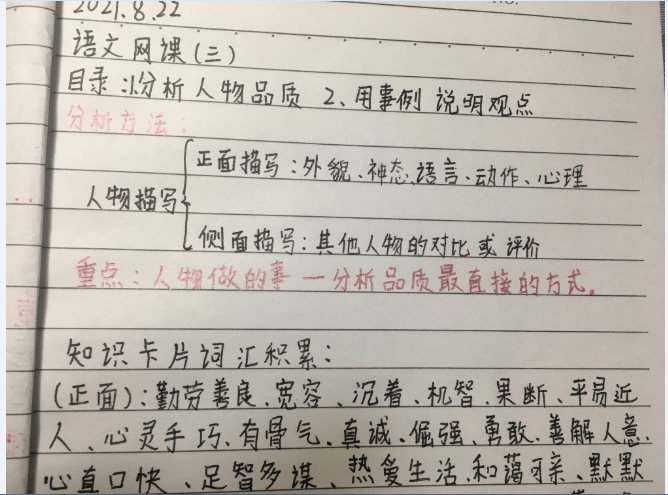 2021.8.22
语文网课(三)
目录:1.分析人物品质 2、用事例说明观点
分析方法:
正面描写:外貌、神态、语言、动作、心理
人物描写
侧面描写:其他人物的对比或评价
重点:人物做的事—分析品质最直接的方式。
知识卡片词汇积累:
(正面):勤劳善良、宽容、沉着、机智、果断、平易近
人、心灵手巧、有骨气、真诚、倔强、勇敢、善解人意、
心直口快、足智多谋、热爱生活、和蔼可亲、默默